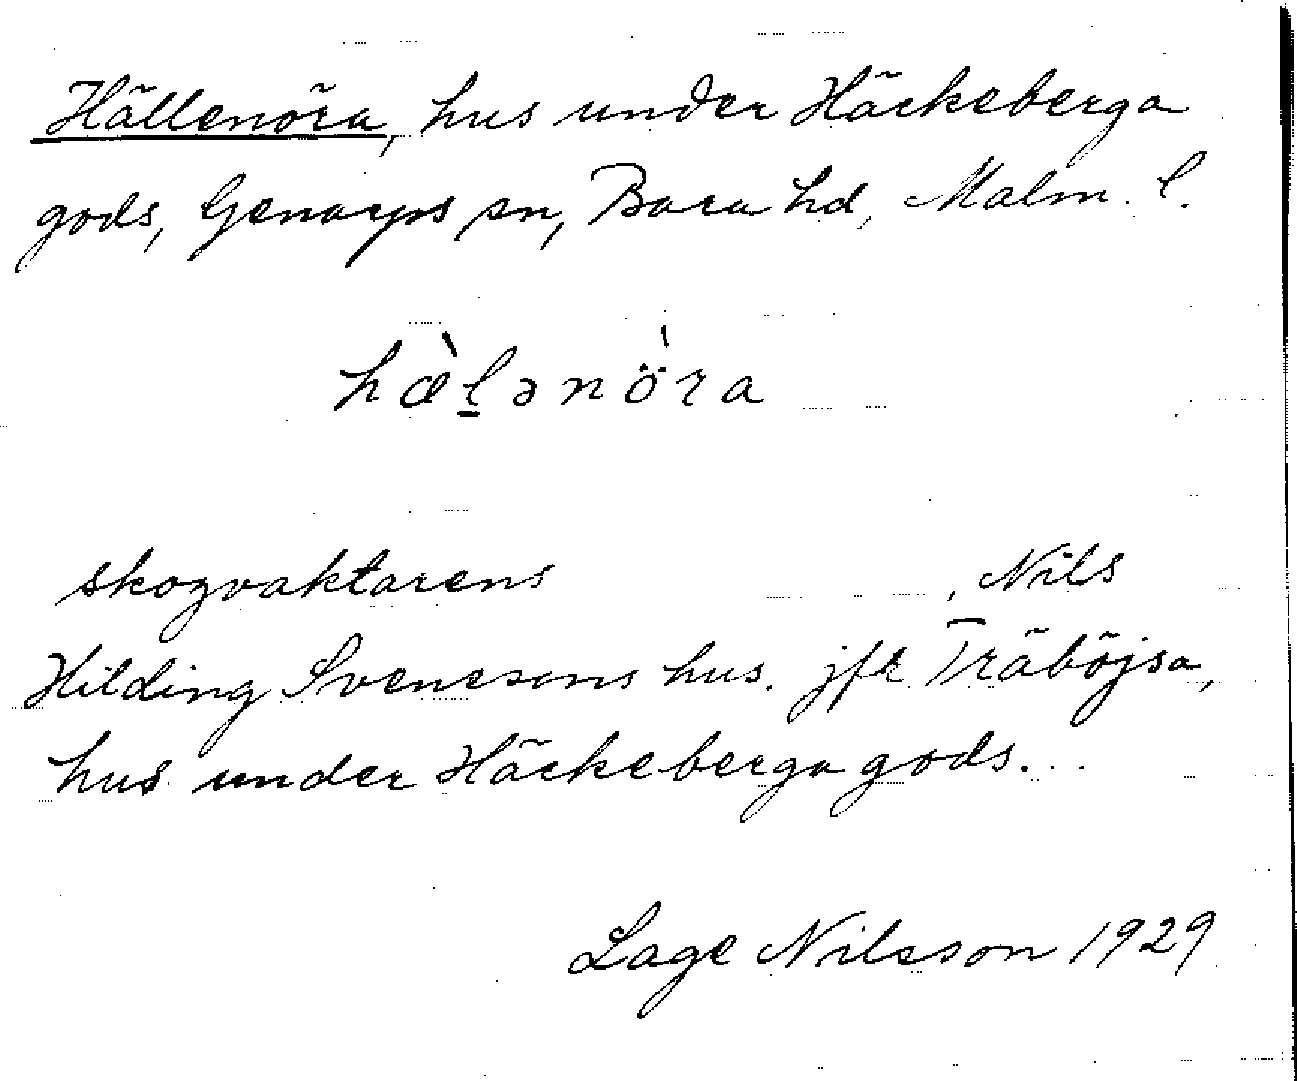 Hällenöra, hus under Häckeberga
gods, Genarps sn, Bara hd, Malm. l.
hæ̀l̠ənö̀ra
skogvaktarens , Nils
Hilding Svenssons hus. jfr Träböjsa,
hus under Häckeberga gods...
Lage Nilsson 1929